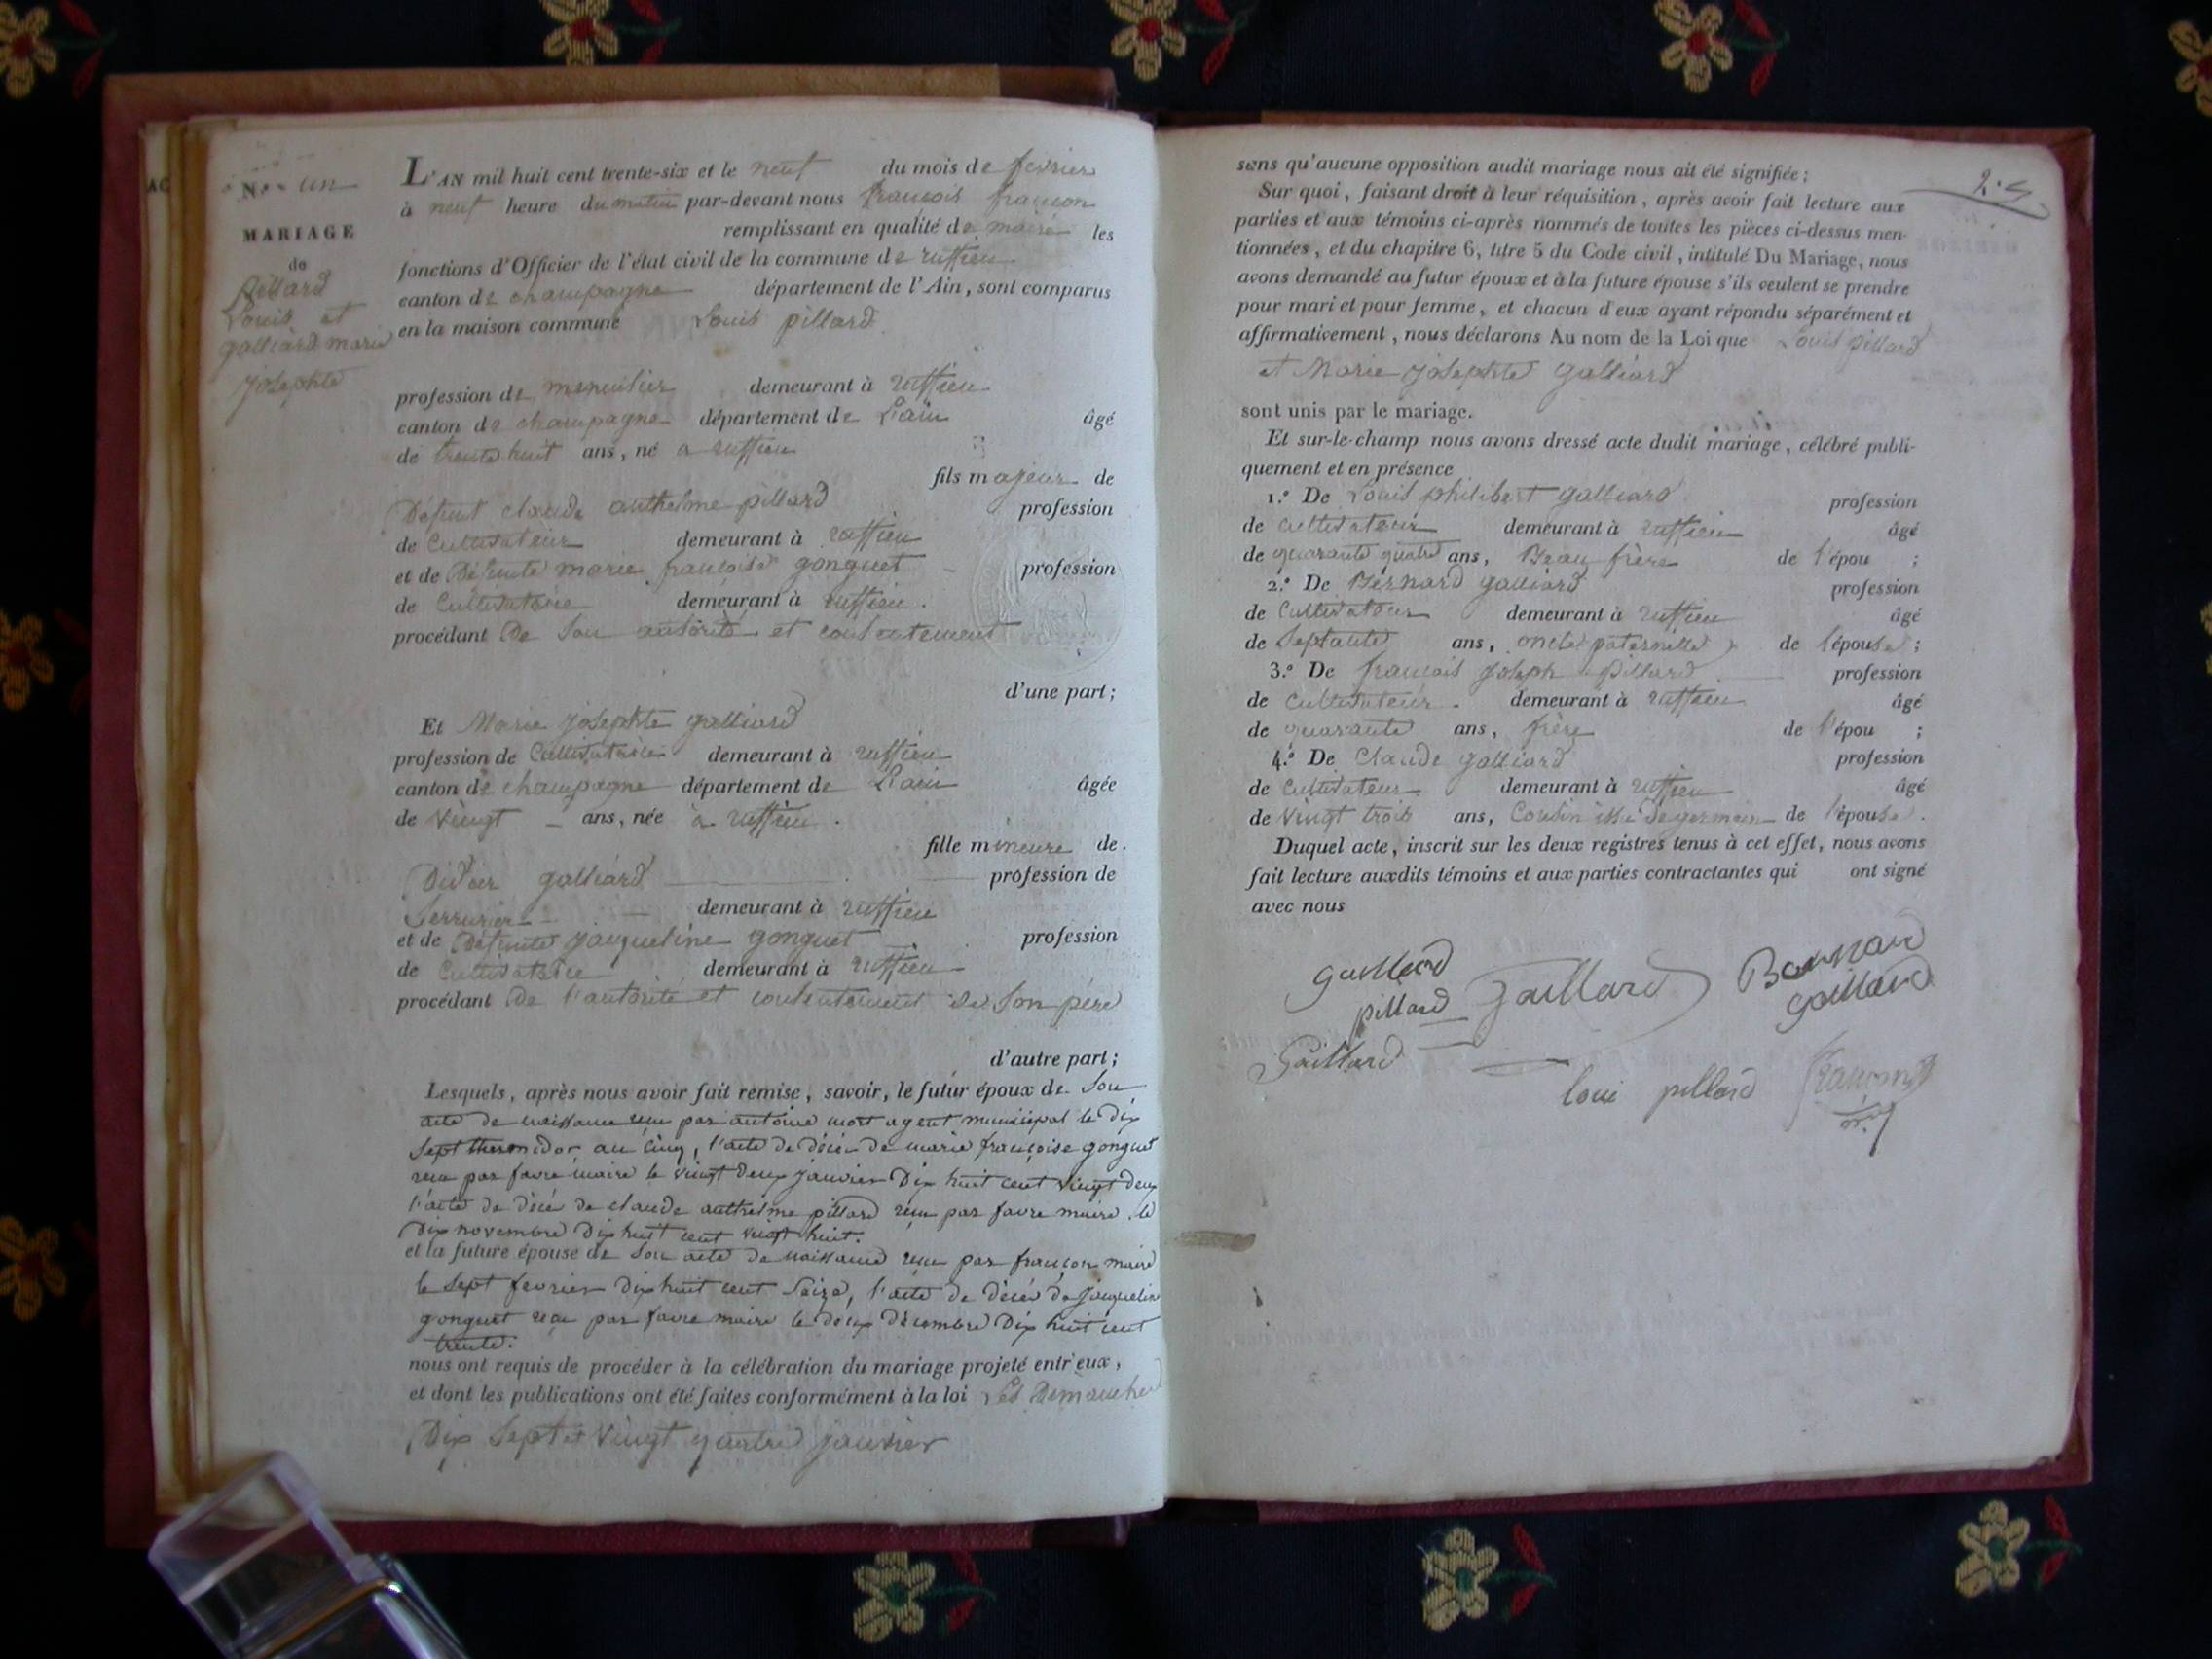 AC
N.º un
MARIAGE
de
pillard
Louis et
galliard marie
josephte
L'AN mil huit cent trente-six et le neuf du mois de fevrier
à neuf heure du matin par-devant nous françois françon
remplissant en qualité de maire les
fonctions d'Officier de l'état civil de la commune de ruffieu
canton de champagne département de l'Ain, sont comparus
en la maison commune Louis pillard
profession de menuisier demeurant à ruffieu
canton de champagne département de L'ain âgé
de trente huit ans, né a ruffieu
fils majeur de
Défunt claude anthelme pillard profession
de Cultivateur demeurant à ruffieu
et de Défunte marie françoise gonguet profession
de Cultivatrice demeurant à ruffieu.
procédant De Son autorité et consentement
d'une part;
Et Marie josephte galliard
profession de Cultivatrice demeurant à ruffieu
canton de champagne département de L'ain âgée
de vingt ans, née à ruffieu.
fille mineure de.
Didier galliard profession de
Serrurier demeurant à ruffieu
et de Défunte jacqueline gonguet profession
de Cultivatrice demeurant à ruffieu
procédant De l'autorité et consentement de Son père
d'autre part;
Lesquels, après nous avoir fait remise, savoir, le futur époux de Son
acte de naissance reçu par antoine mort agent municipal le Dix
Sept thermidor an Cinq, l'acte de décés de marie françoise gonguet
reçu par favre maire le vingt Deux janvier Dix huit cent vingt deux
l'acte de décés de claude anthelme pillard reçu par favre maire le
Dix novembre Dix huit cent vingt huit.
et la future épouse de Son acte de Naissance reçu par françon maire
le Sept fevrier Dix huit cent Seize, l'acte de décés de jacqueline
gonguet reçu par favre maire le deux Décembre Dix huit cent
trente.
nous ont requis de procéder à la célébration du mariage projeté entr'eux,
et dont les publications ont été faites conformément à la loi Les Dimanches
Dix Sept et vingt quatre janvier
sans qu'aucune opposition audit mariage nous ait été signifiée;
Sur quoi, faisant droit à leur réquisition, après avoir fait lecture aux
parties et aux témoins ci-après nommés de toutes les pièces ci-dessus men-
tionnées, et du chapitre 6, titre 5 du Code civil, intitulé Du Mariage, nous
avons demandé au futur époux et à la future épouse s'ils veulent se prendre
pour mari et pour femme, et chacun d'eux ayant répondu séparément et
affirmativement, nous déclarons Au nom de la Loi que Louis pillard
et Marie josephte galliard
sont unis par le mariage.
Et sur-le-champ nous avons dressé acte dudit mariage, célébré publi-
quement et en présence
1.º De Louis philibert galliard profession
de Cultivateur demeurant à ruffieu âgé
de quarante quatre ans, Beau frère de l'épou ;
2.º De Bernard galliard profession
de Cultivateur demeurant à ruffieu âgé
de Septante ans, oncle paternelle de l'épouse;
3.º De françois joseph pillard profession
de Cultivateur. demeurant à ruffieu âgé
de quarante ans, frère de l'épou ;
4.º De Claude galliard profession
de Cultivateur demeurant à ruffieu âgé
de vingt trois ans, Cousin issu de germain de l'épouse.
Duquel acte, inscrit sur les deux registres tenus à cet effet, nous avons
fait lecture auxdits témoins et aux parties contractantes qui ont signé
avec nous
galliard
pillard
Gaillard
Gaillard
loui pillard